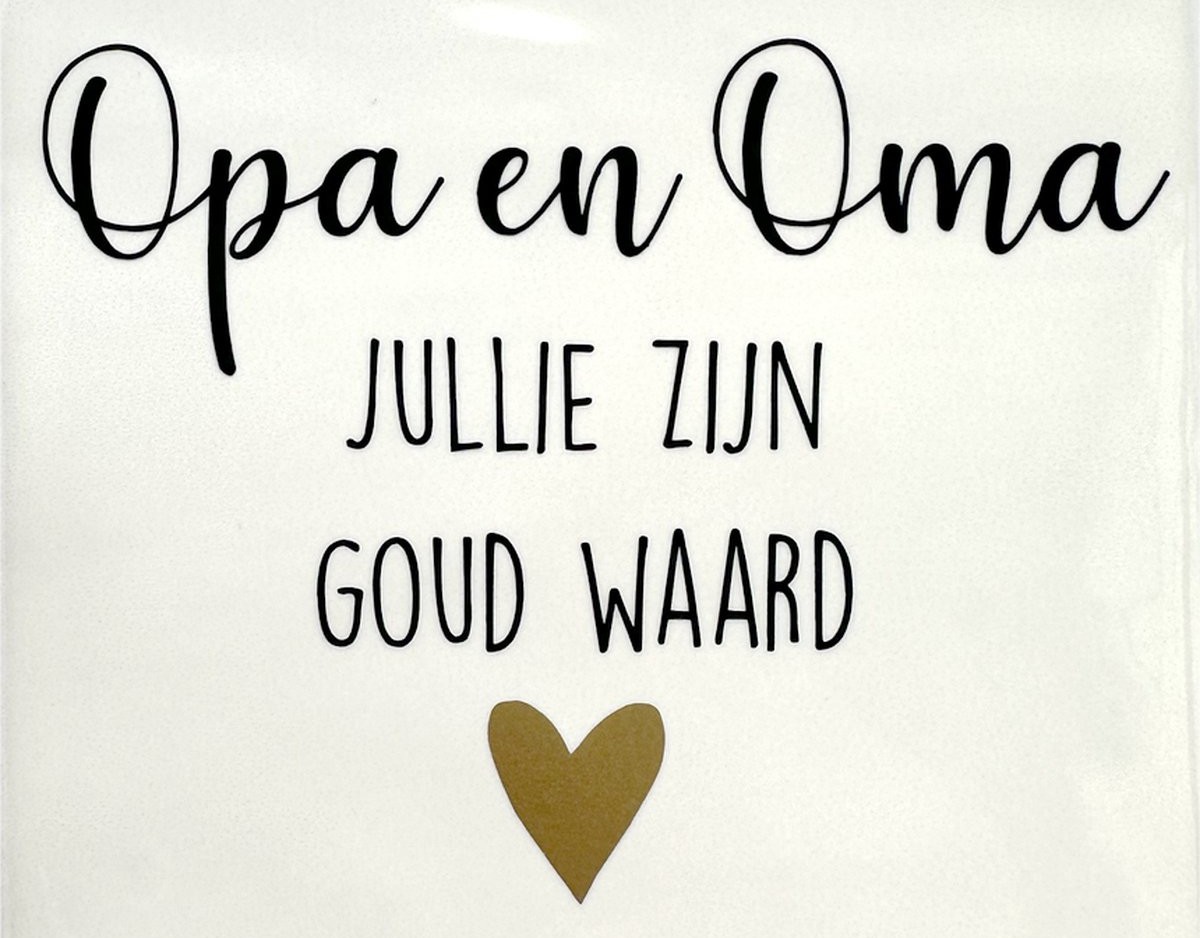 Opa en Oma
JULLIE ZIJN
GOUD WAARD